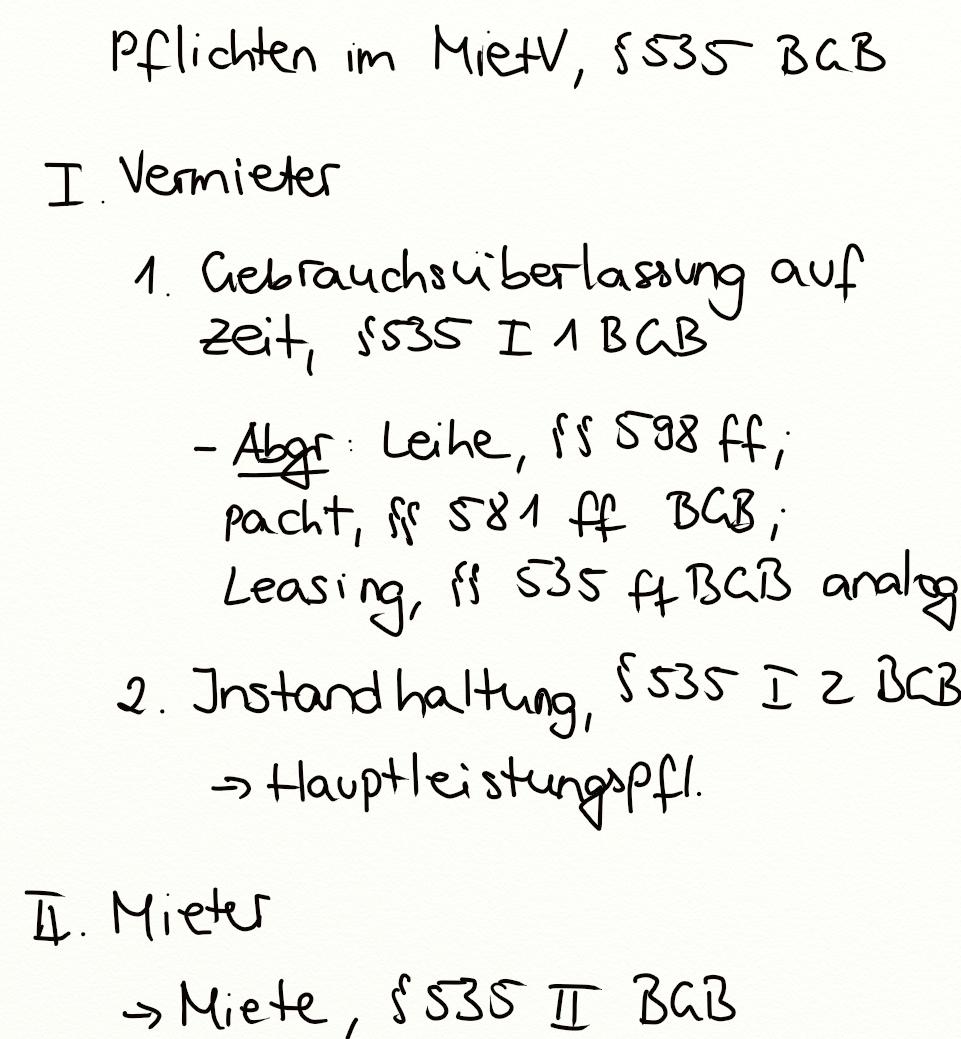 Pflichten im MietV, § 535 BGB
I. Vermieter
1. Gebrauchsüberlassung auf
Zeit, § 535 I 1 BGB
- Abgr: Leihe, §§ 598 ff;
Pacht, §§ 581 ff BGB;
Leasing, §§ 535 ff BGB analog
2. Instandhaltung, § 535 I 2 BGB
→ Hauptleistungspfl.
II. Mieter
→ Miete, § 535 II BGB